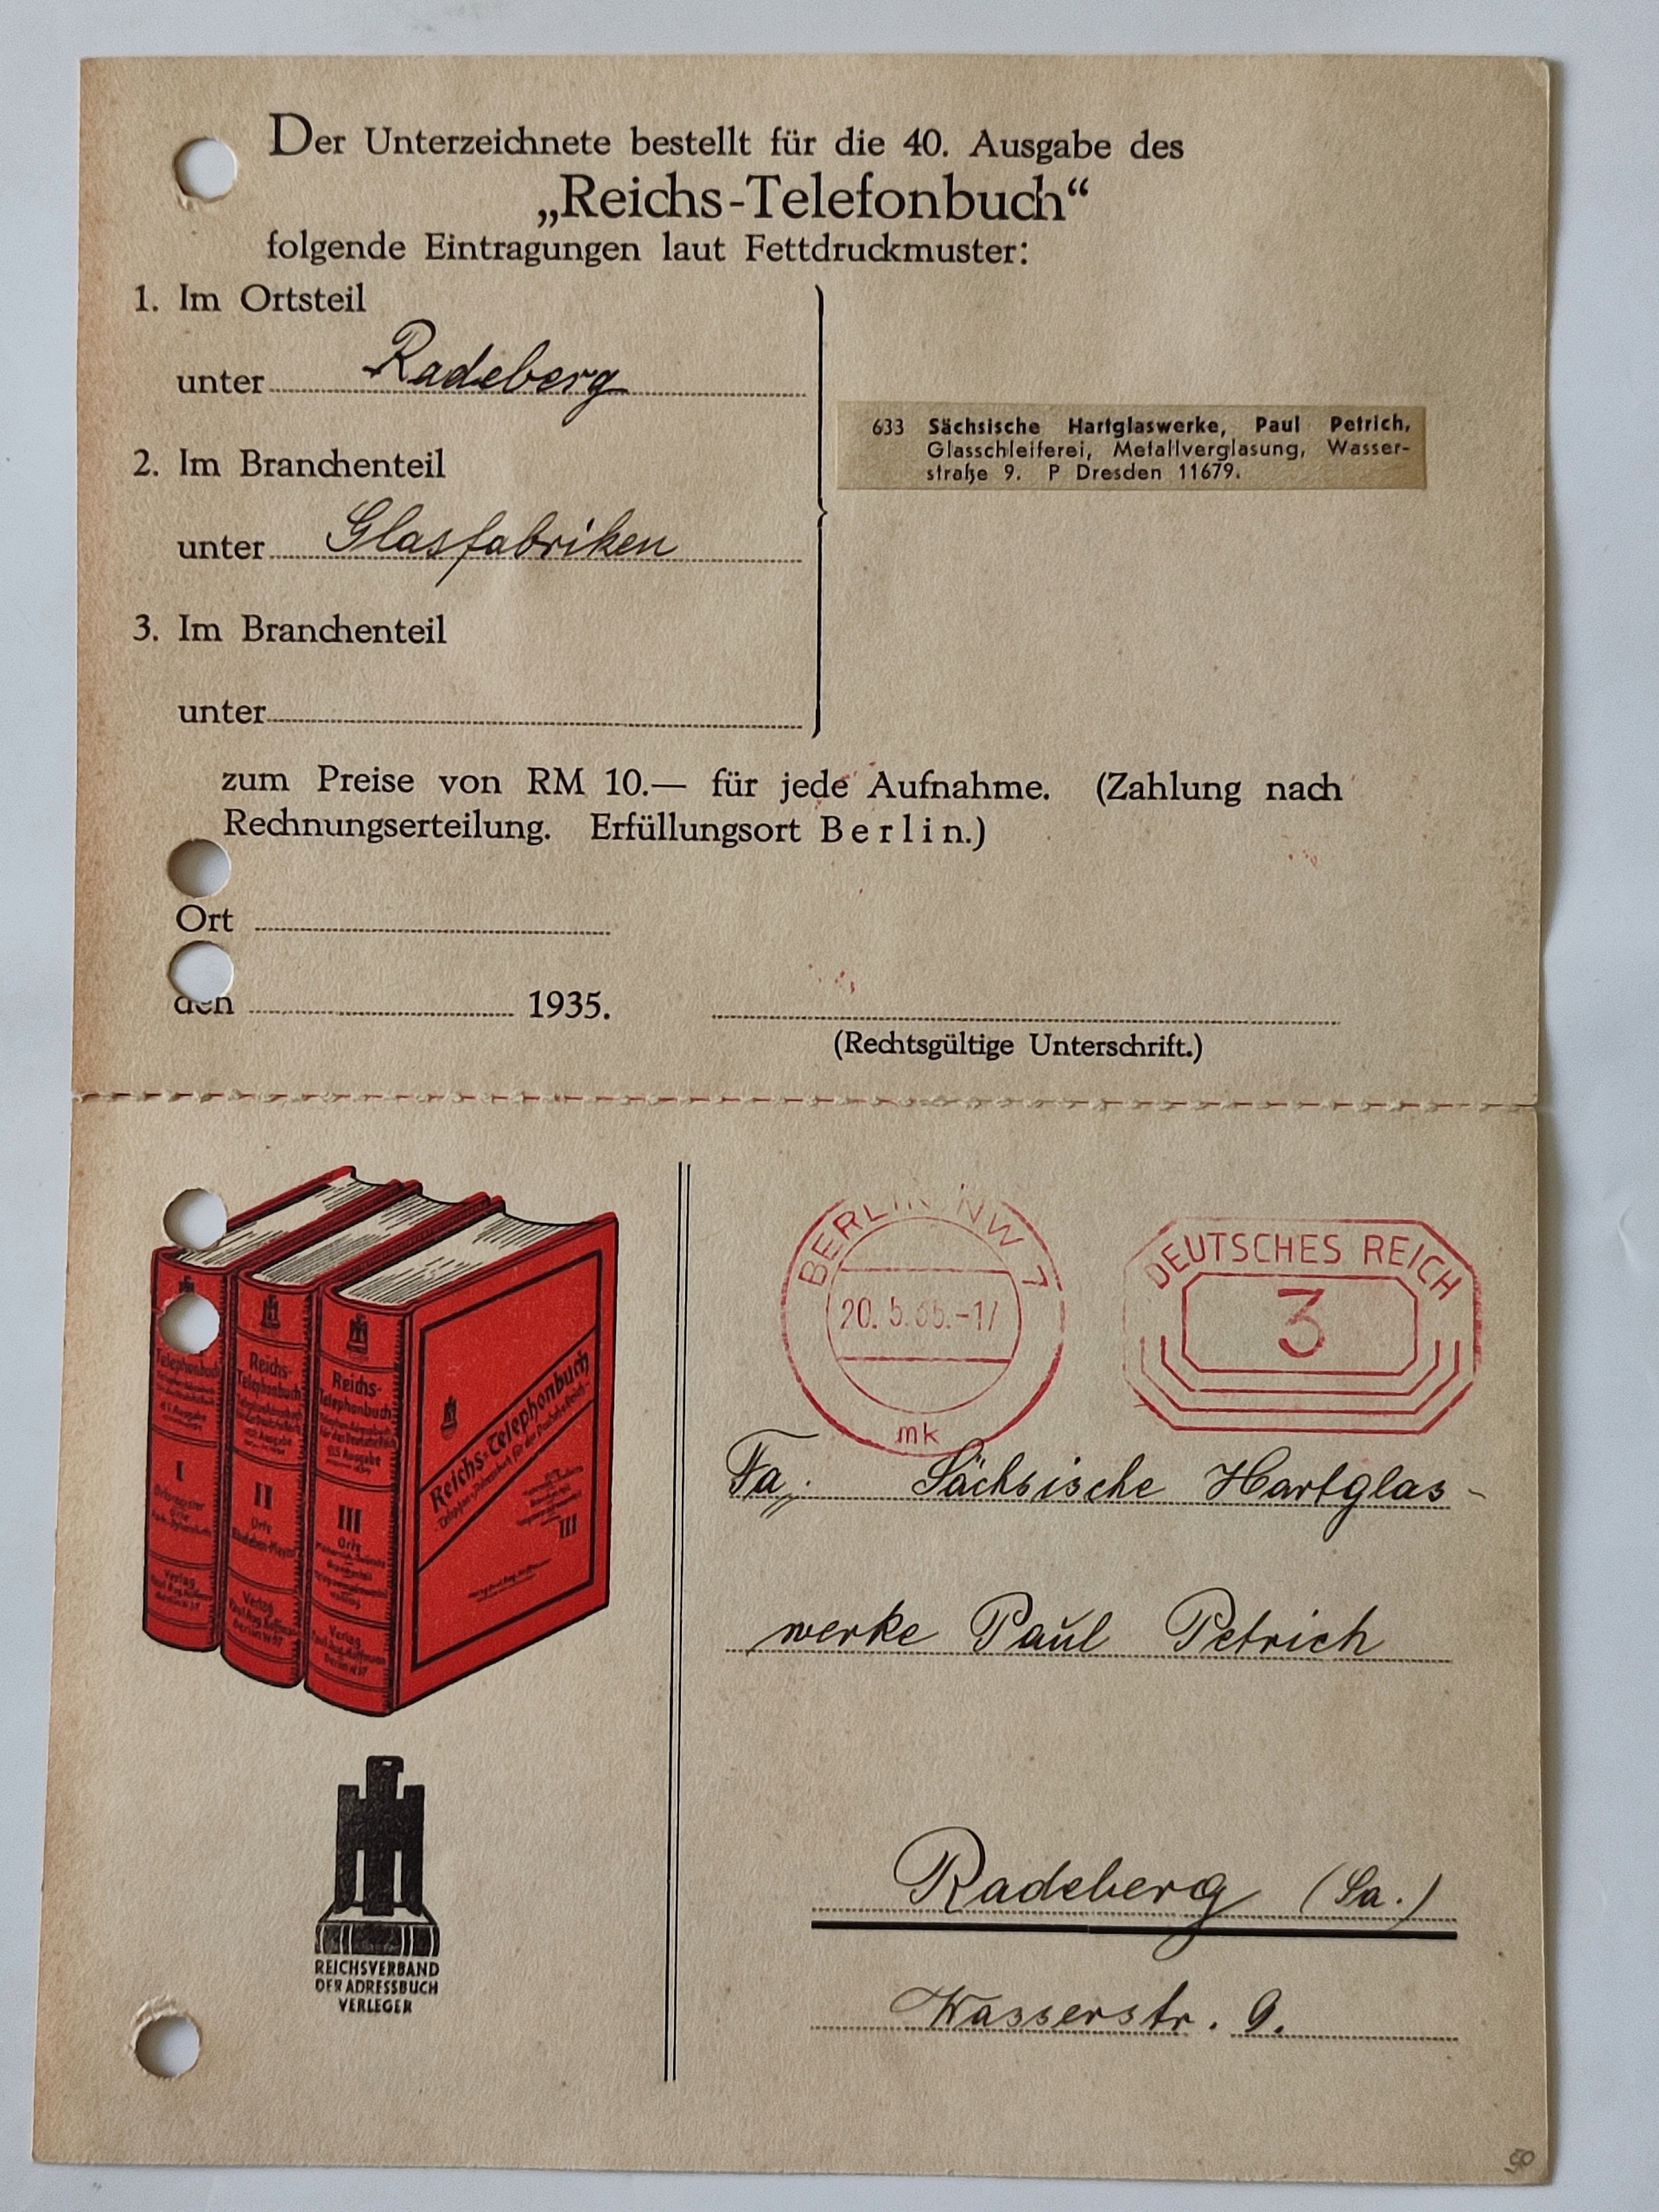 Der Unterzeichnete bestellt für die 40. Ausgabe des
„Reichs-Telefonbuch“
folgende Eintragungen laut Fettdruckmuster:
1. Im Ortsteil
unter Radeberg
2. Im Branchenteil
unter Glasfabriken
3. Im Branchenteil
unter
633 Sächsische Hartglaswerke, Paul Petrich,
Glasschleiferei, Metallverglasung, Wasser-
straße 9. P Dresden 11679.
zum Preise von RM 10.— für jede Aufnahme. (Zahlung nach
Rechnungserteilung. Erfüllungsort Berlin.)
Ort
den 1935.
(Rechtsgültige Unterschrift.)
Telephonbuch
I
Verlag
Reichs-
Telephonbuch
II
Orts
Verlag
Reichs-
Telephonbuch
für das Deutsche Reich
III
Orts
Verlag
Reichs-Telephonbuch
III
REICHSVERBAND
DER ADRESSBUCH
VERLEGER
BERLIN NW 7
20. 5. 35.-17
mk
DEUTSCHES REICH
3
Fa. Sächsische Hartglas-
werke Paul Petrich
Radeberg (Sa.)
Wasserstr. 9.
50